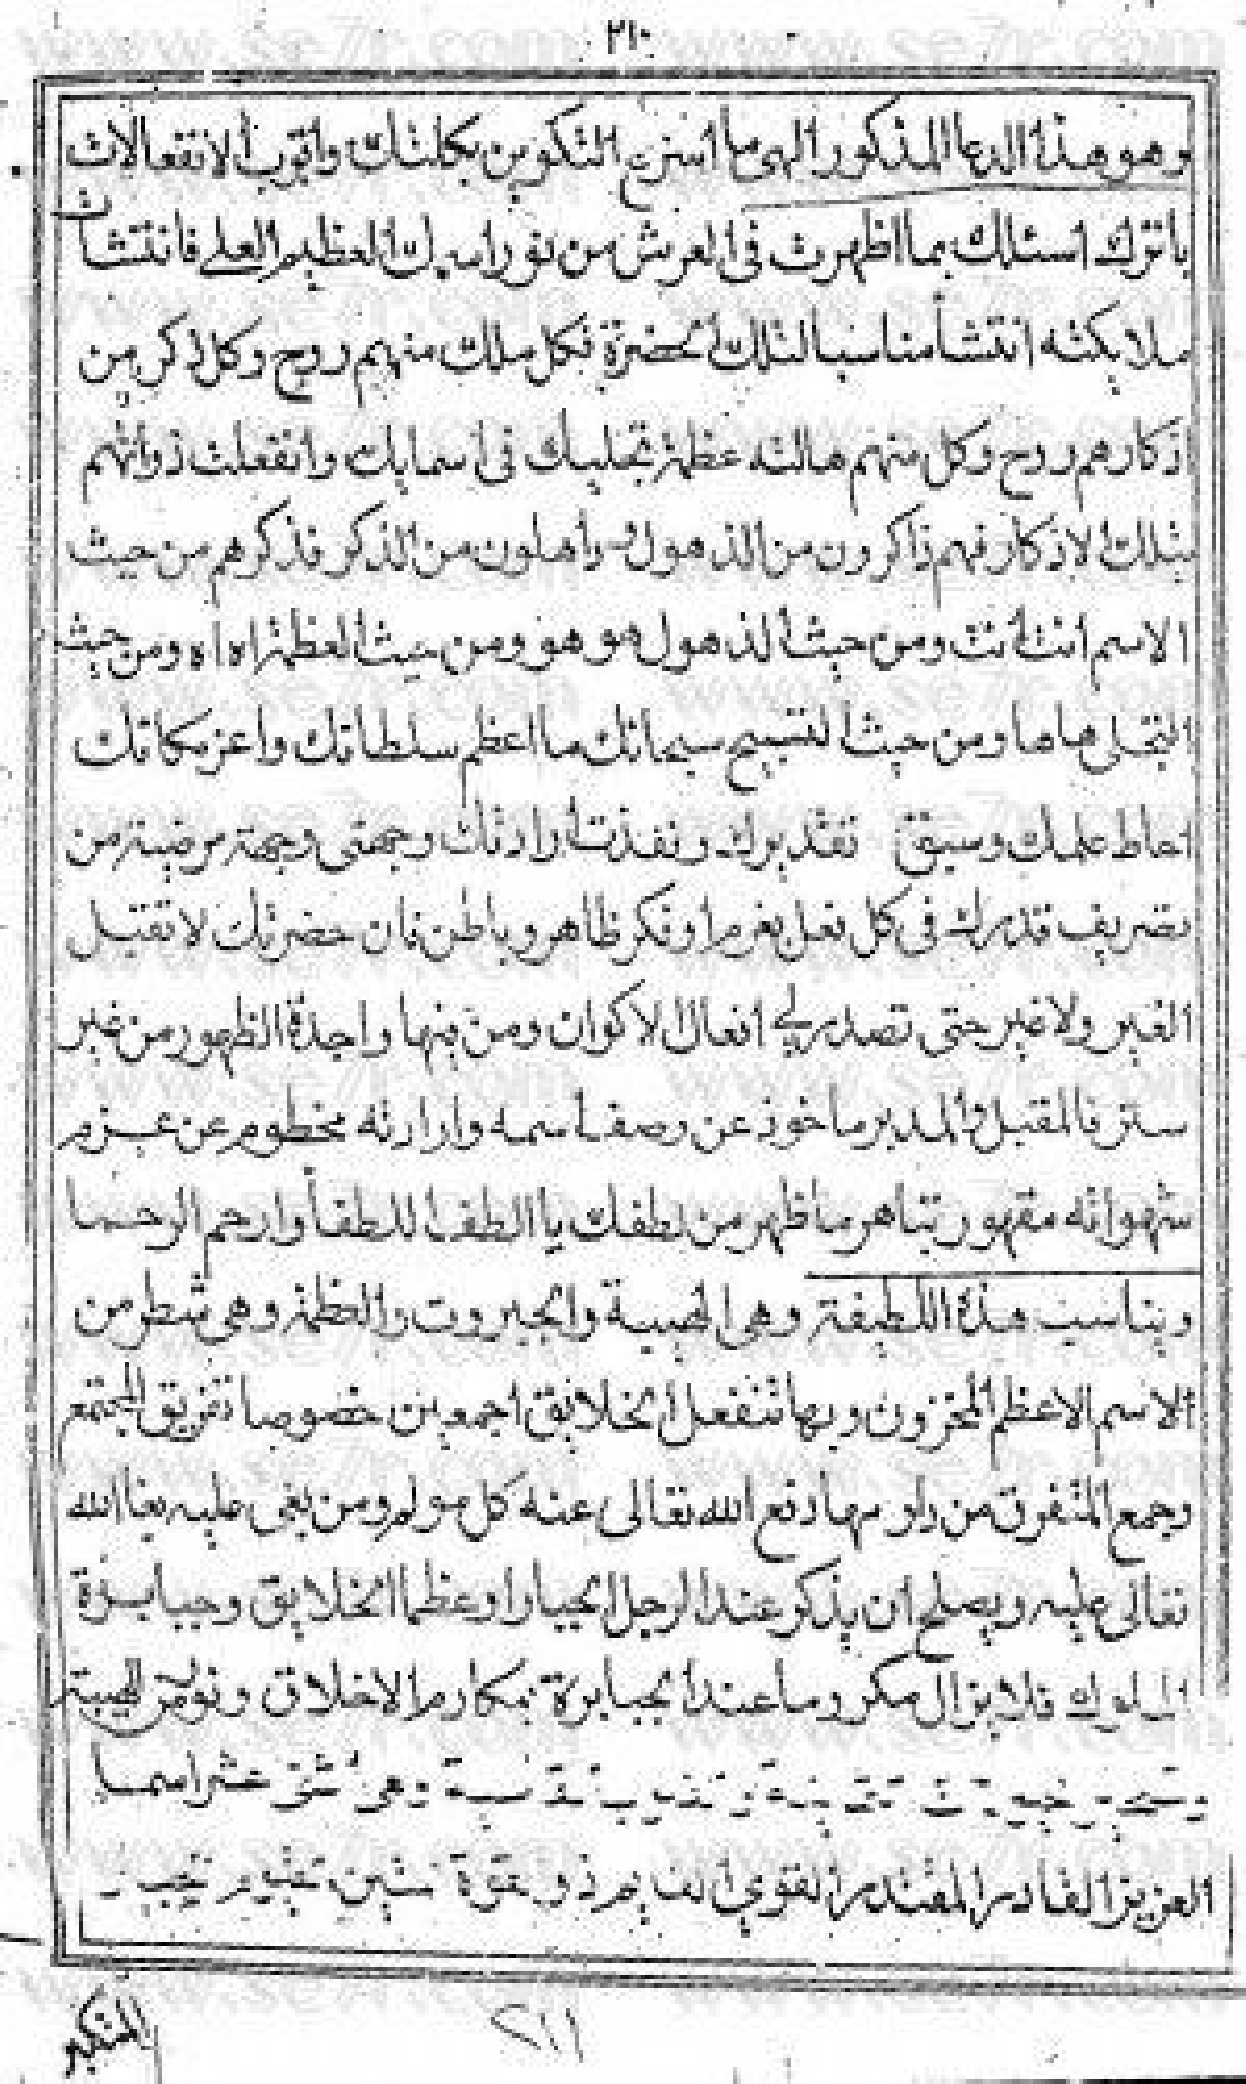 ٢١٠
وهو هذا الدعا المذكور الهى ما اسرع التكوين بكلمتك واقرب الانفعالات
بامرك اسئلك بما اظهرت فى العرش من نور اسمك العظيم العلى فانتشات
ملايكته انتشأ مناسبا لتلك الحضرة فكل ملك منهم روح وكل ذكر من
اذكارهم روح وكل منهم هالته عظمة تجليك فى اسمايك وانفعلت ذواتهم
بتلك الاذكار فهم ذاكرون من الذهول وذاهلون من الذكر فذكرهم من حيث
الاسم انت انت ومن حيث الذهول هو هو ومن حيث العظمة اه اه ومن حيث
التجلى ها ها ومن حيث التسبيح سبحانك ما اعظم سلطانك واعز مكانك
احاط علمك وسبق تقديرك ونفذت ارادتك وجهتى وجهة مرضية من
تصريف قدرتك فى كل فعل بعزم او فكر ظاهر وباطن فان حضرتك لا تقبل
الغير ولا غير حتى تصدر لى افعال الاكوان ومن فيها واجدة الظهور من غير
ستر فالمقبل والمدبر ماخوذ عن وصف اسمه وارادته مخطوم عن عزم
شهواته مقهور بباهر ما ظهر من لطفك يا الطف اللطفا وارحم الرحما
ويناسب هذه اللطيفة وهى الهيبة والجبروت والعظمة وهى شطر من
الاسم الاعظم المخزون وبها تنفعل الخلايق اجمعين خصوصا تفريق المجتمع
وجمع المتفرق من داومها دفع الله تعالى عنه كل مولم ومن بغى عليه بغا الله
تعالى عليه ويصلح ان يذكر عند الرجل الجبار او عظما الخلايق وجبابرة
الملوك فلا يزال مكروما عند الجبابرة بمكارم الاخلاق ونومن الهيبة
وهى عشر اسما
العزيز القادر المقتدر القوى القايم ذو قوة متين
٢١١
المتكبر